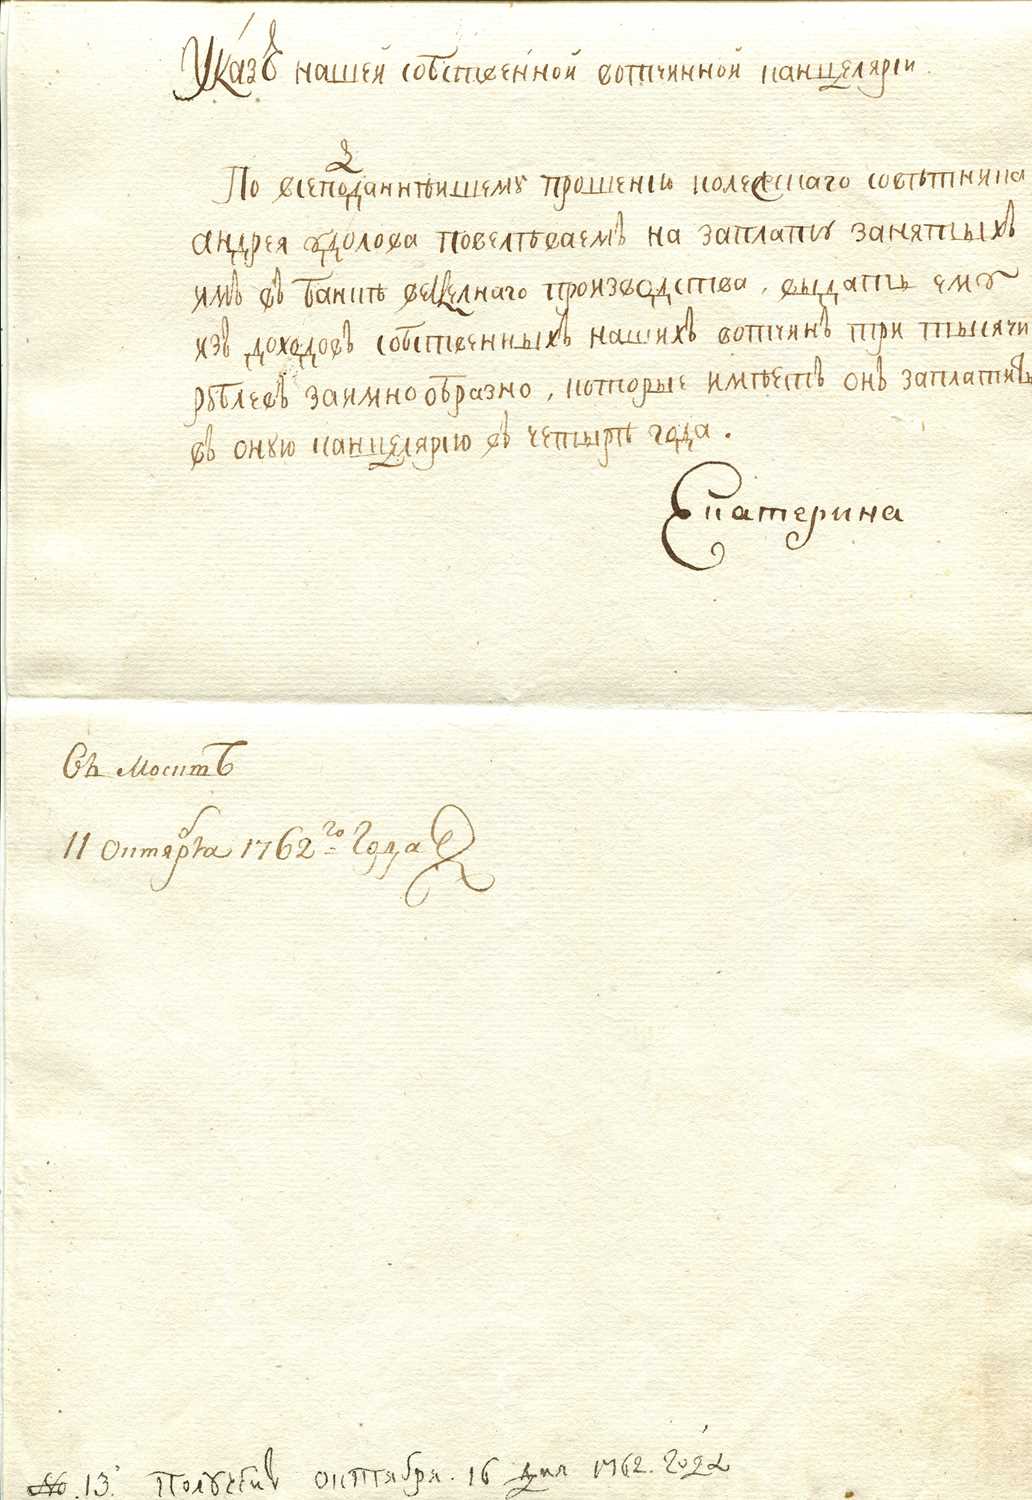 Указъ нашей собственной вотчинной канцелярїи
По всеподаннѣишему прошенїю колежскаго совѣтника
андрея удолова повелѣваемъ на заплату занятыхъ
имъ въ банкѣ векселнаго производства, выдать ему
изъ доходовъ собственныхъ нашихъ вотчинъ три тысячи
рублевъ заимнообразно, которые имѣетъ онъ заплатить
въ оную канцелярїю въ четырѣ года.
Екатерина
Въ москвѣ
11 октября 1762го года
No. 13. Полученъ октября. 16 дня 1762. году